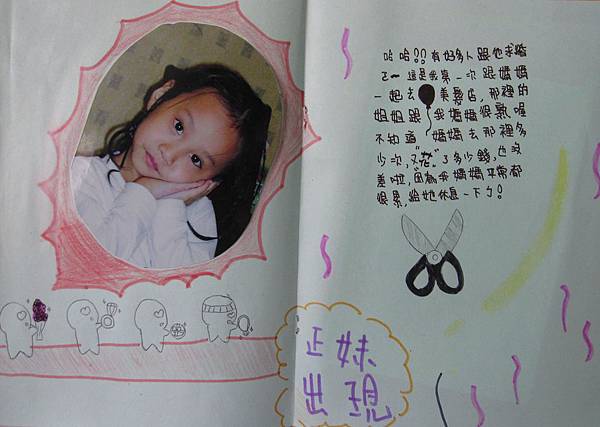 哈哈!!有好多人跟他求婚
ㄛ~這是我第一次跟媽媽
一起去美髮店,那裡的
姐姐跟我媽媽很熟喔
不知道媽媽去那裡多
少次,又"花"了多少錢,也沒
差啦,因為我媽媽平常都
很累,給她休息一下ㄅ!
正妹
出現